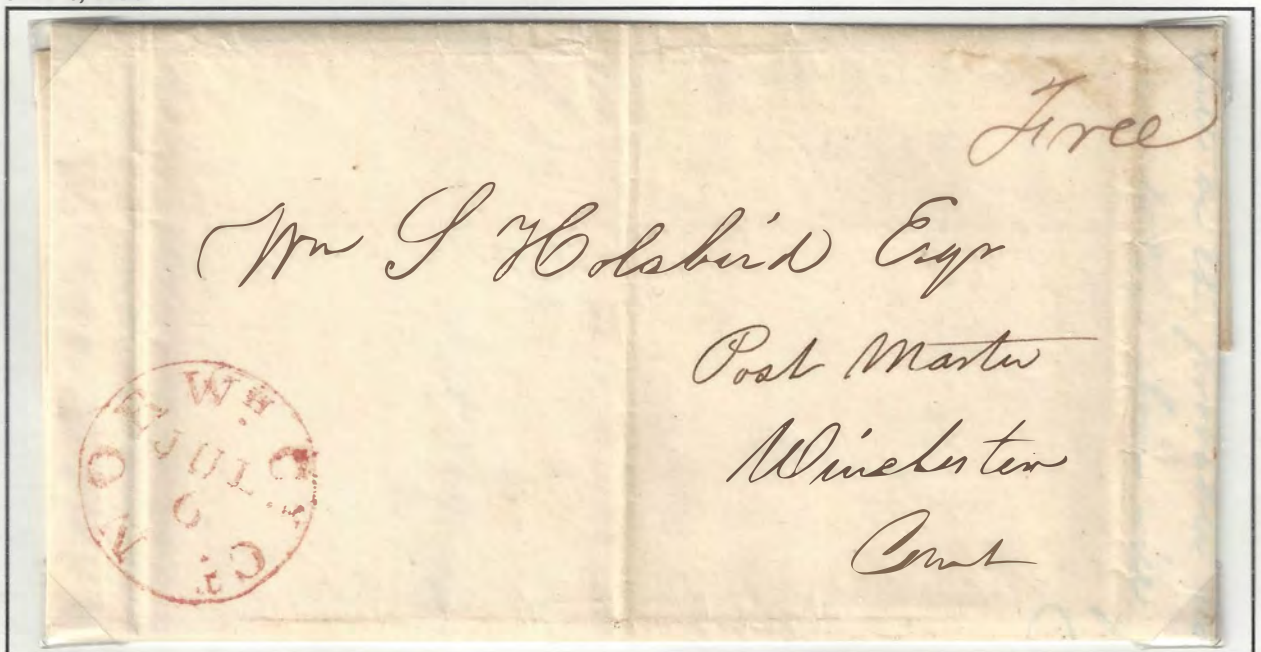 Free
Wm S Holabird Esqr
Post Master
Winchester
Connt
NORWH CY CT.
JUL